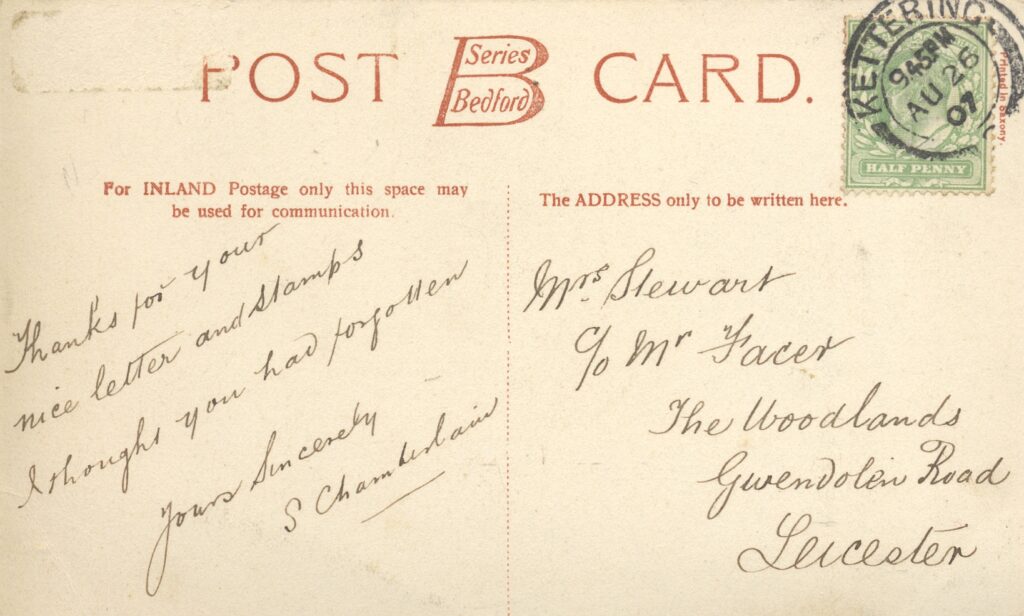 POST Series B Bedford CARD.
KETTERING
9 45 PM
AU 26
07
HALF PENNY
Printed in Saxony.
For INLAND Postage only this space may
be used for communication.
The ADDRESS only to be written here.
Thanks for your
nice letter and stamps
I thought you had forgotten
Yours Sincerely
S Chamberlain
Mrs. Stewart
c/o Mr Facer
The Woodlands
Gwendolin Road
Leicester